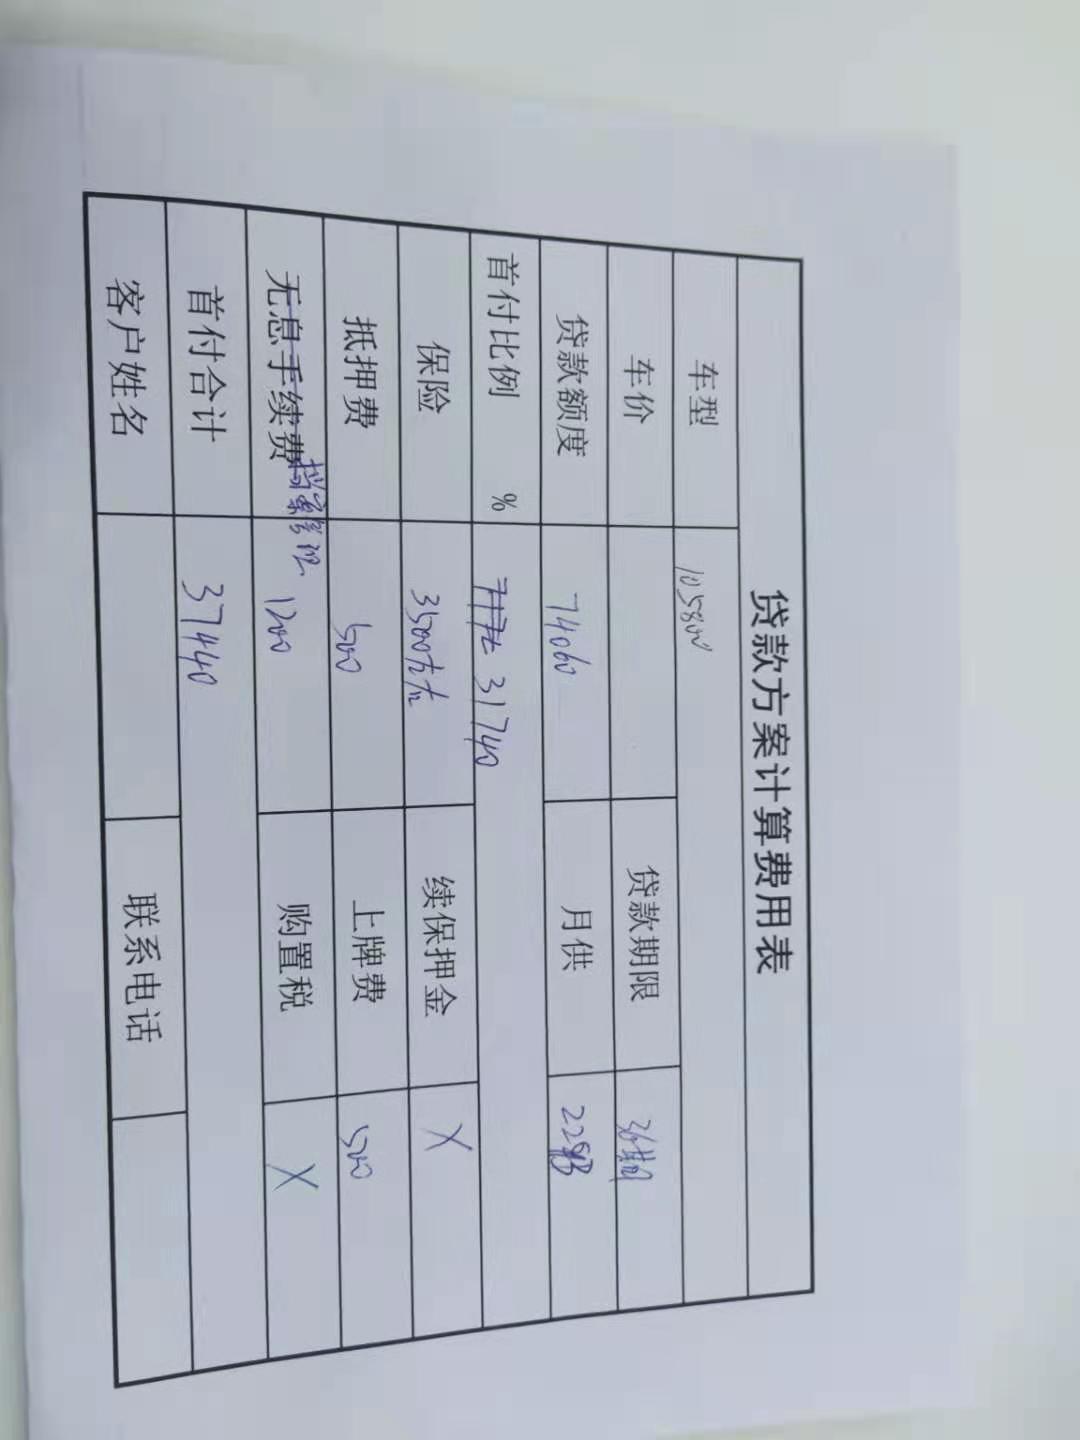 贷款方案计算费用表
车型 105800
车价 贷款期限 36期
贷款额度 74060 月供
首付比例 % 31740
保险 3500左右 续保押金 X
抵押费 500 上牌费 500
无息手续费 档案管理 1200 购置税 X
首付合计 37440
客户姓名 联系电话